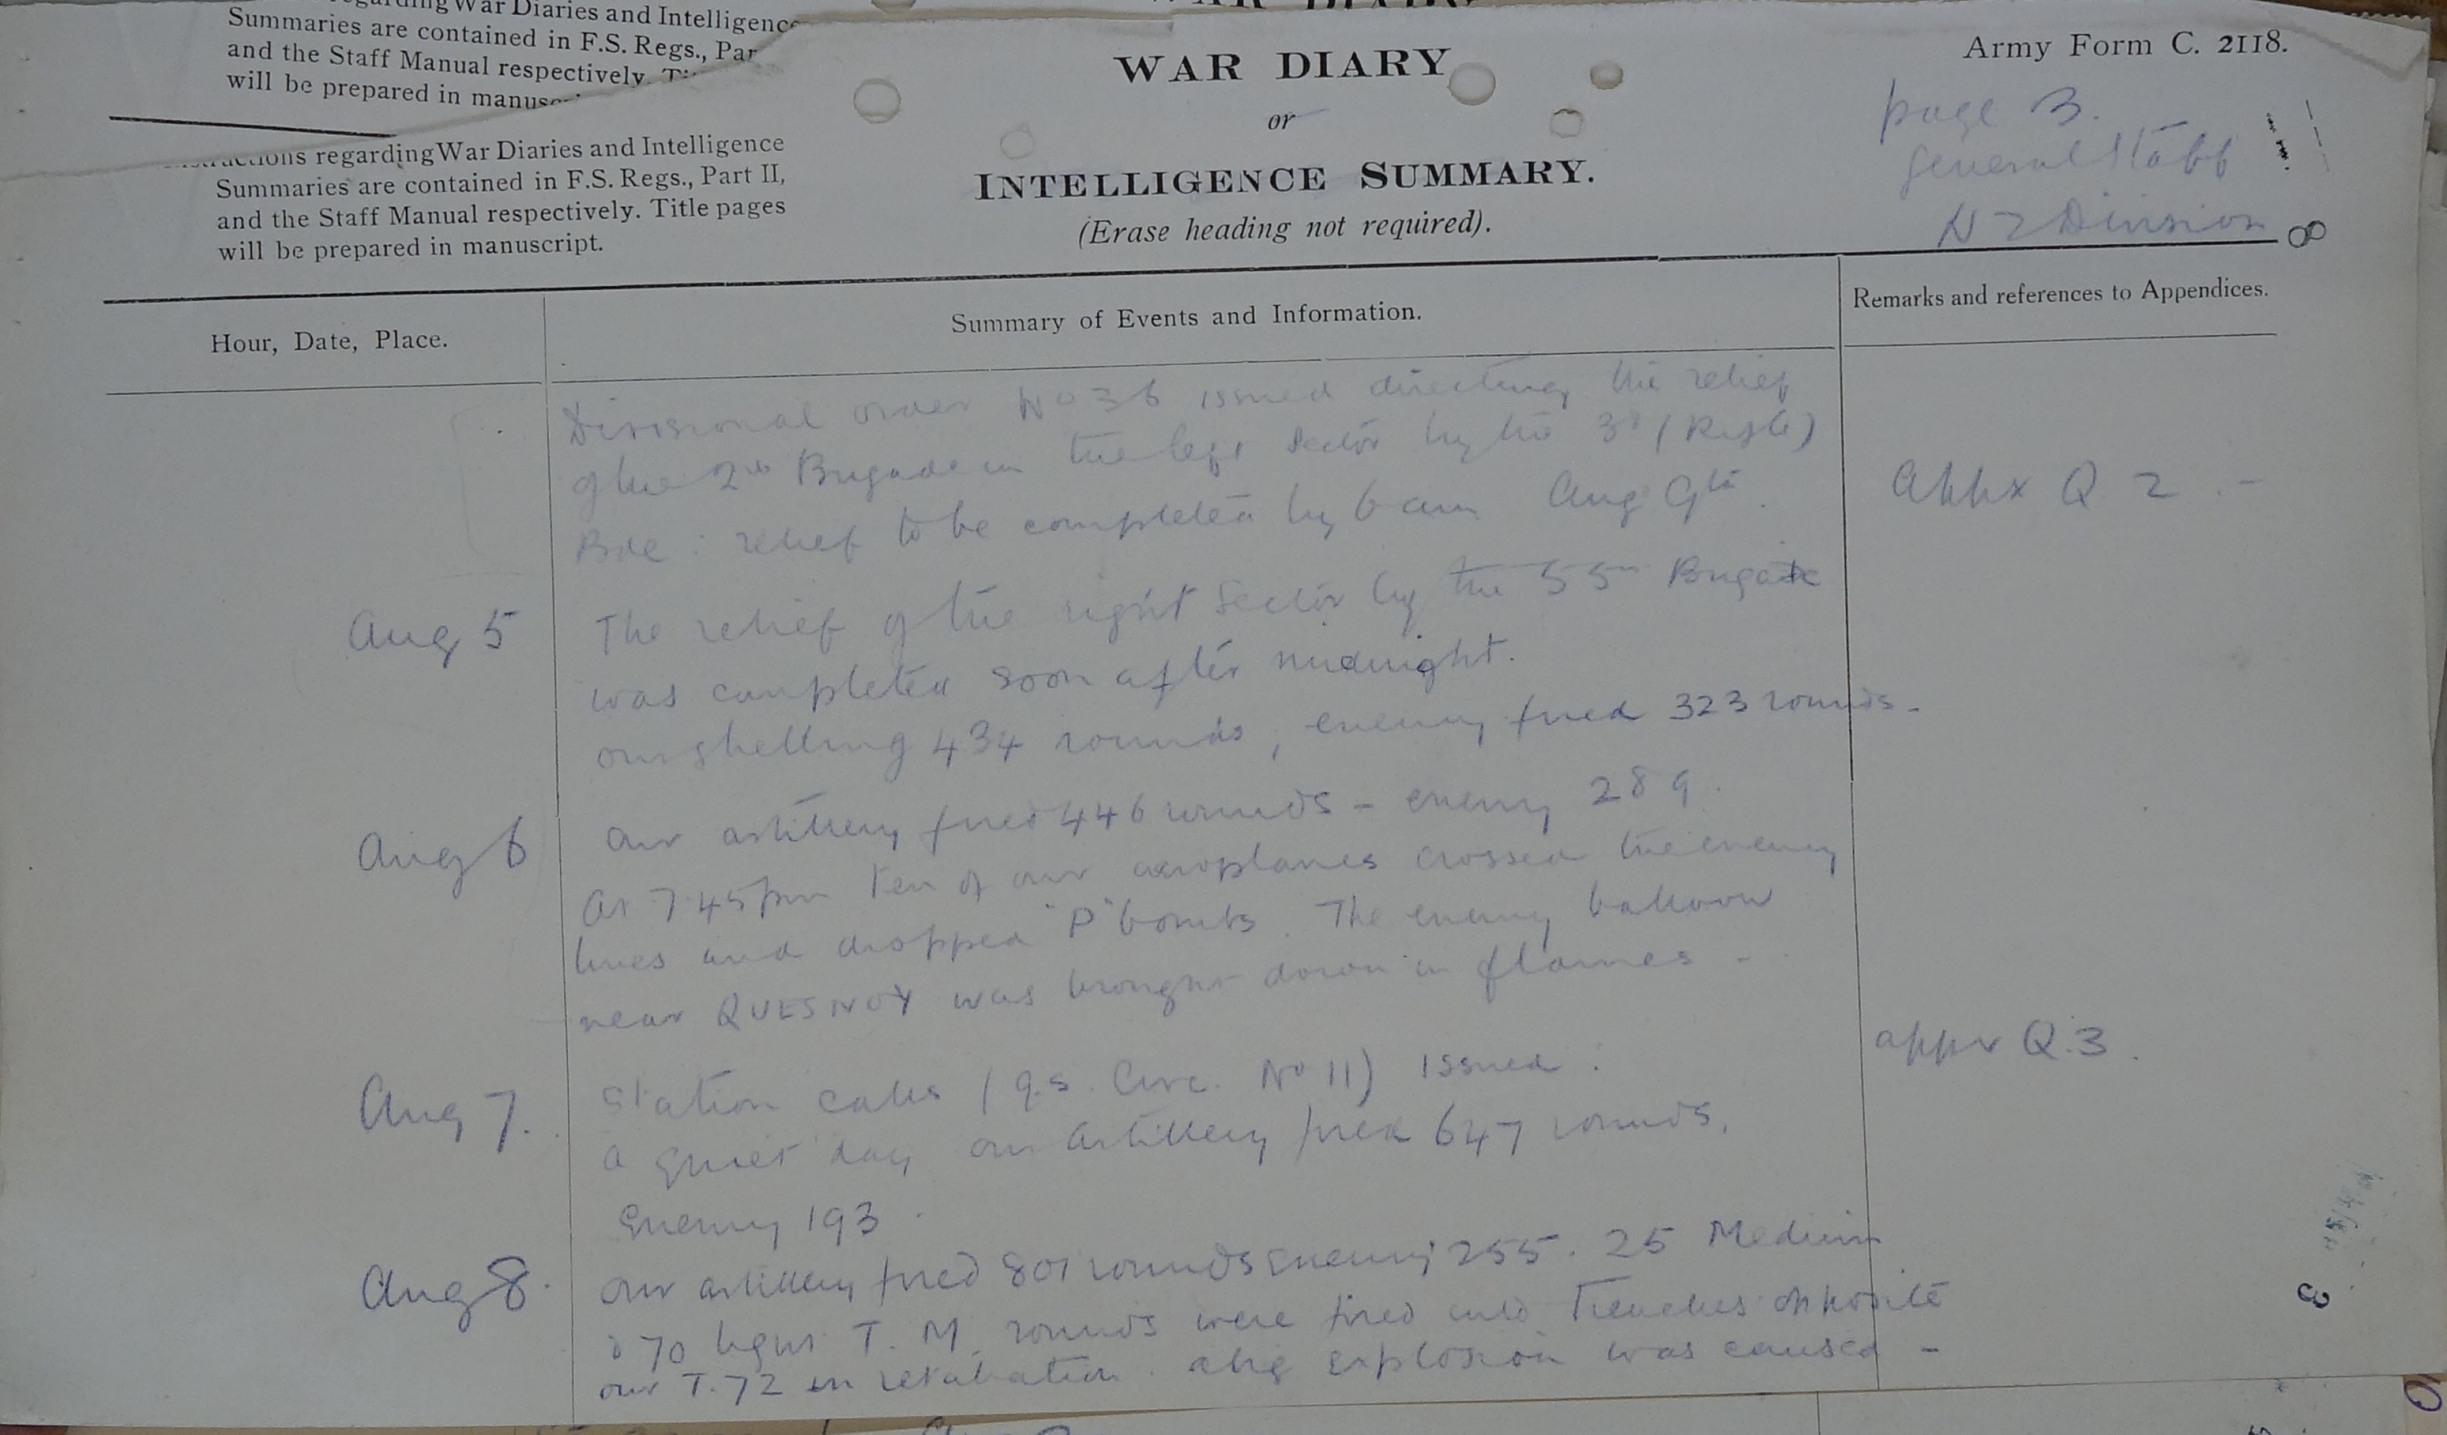 regarding War Diaries and Intelligence
Summaries are contained in F.S. Regs., Par
and the Staff Manual respectively.
will be prepared in
regarding War Diaries and Intelligence
Summaries are contained in F.S. Regs., Part II,
and the Staff Manual respectively. Title pages
will be prepared in manuscript.
WAR DIARY
or
INTELLIGENCE SUMMARY.
(Erase heading not required).
Army Form C. 2118.
page 3.
General Staff
N Z Division
8
Hour, Date, Place.
Summary of Events and Information.
Remarks and references to Appendices.
Divisional order No 36 issued directing the relief
of the 2nd Brigade in the left Sector by the 3rd (Rifle)
Bde : relief to be completed by 6 am Aug 9th.
Appx Q 2 . -
Aug 5
The relief of the right Sector by the 55th Brigade
was completed soon after midnight.
our shelling 434 rounds, enemy fired 323 rounds -
Aug 6
Our artillery fired 446 rounds - enemy 289.
At 7.45 pm Ten of our aeroplanes crossed the enemy
lines and dropped "P" bombs. The enemy balloon
near QUESNOY was brought down in flames -
Aug 7.
Station calls (G.S. Circ. No 11) issued :
appx Q.3.
A quiet day our Artillery fired 647 rounds,
Enemy 193.
Aug 8.
Our artillery fired 801 rounds Enemy 255. 25 Medium
& 70 light T. M. rounds were fired into Trenches opposite
our T.72 in retaliation. A big explosion was caused -
3